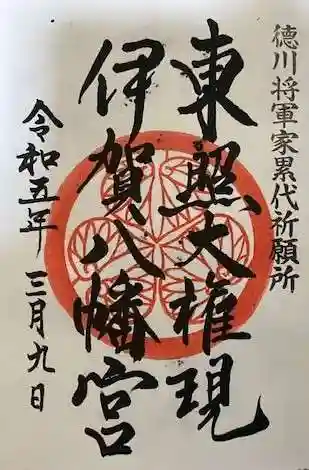 徳川将軍家累代祈願所
東照大権現
伊賀八幡宮
令和五年三月九日